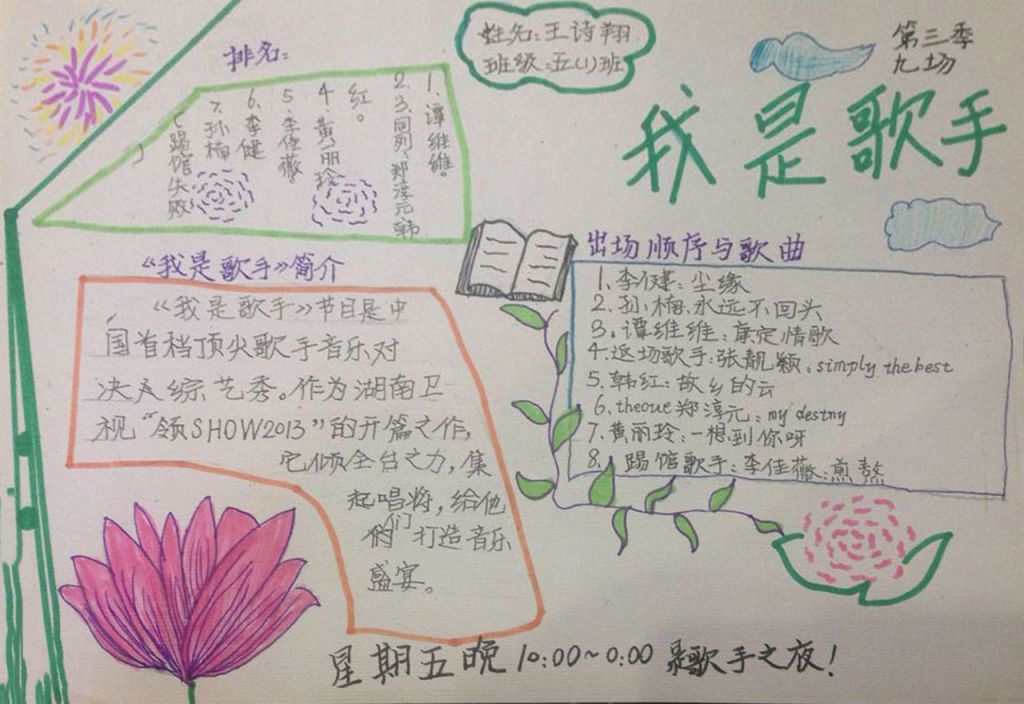 姓名:王诗翔
班级:五(1)班
第三季
九场
我是歌手
排名:
1、谭维维。
2、3、同列、郑淳元韩
红。
4、黄丽玲
5、李佳薇。
6、李健
7、孙楠
(踢馆失败
)
《我是歌手》简介
《我是歌手》节目是中
国首档顶尖歌手音乐对
决真人综艺秀。作为湖南卫
视“领SHOW2013”的开篇之作,
它倾全台之力,集
起唱将,给他
们打造音乐
盛宴。
出场顺序与歌曲
1、李健:尘缘
2、孙楠、永远不回头
3。谭维维:康定情歌
4、返场歌手:张靓颖:simply the best
5、韩红:故乡的云
6、theoue郑淳元:my destny
7、黄丽玲:一想到你呀
8、踢馆歌手:李佳薇:煎熬
星期五晚10:00~0:00 歌手之夜!